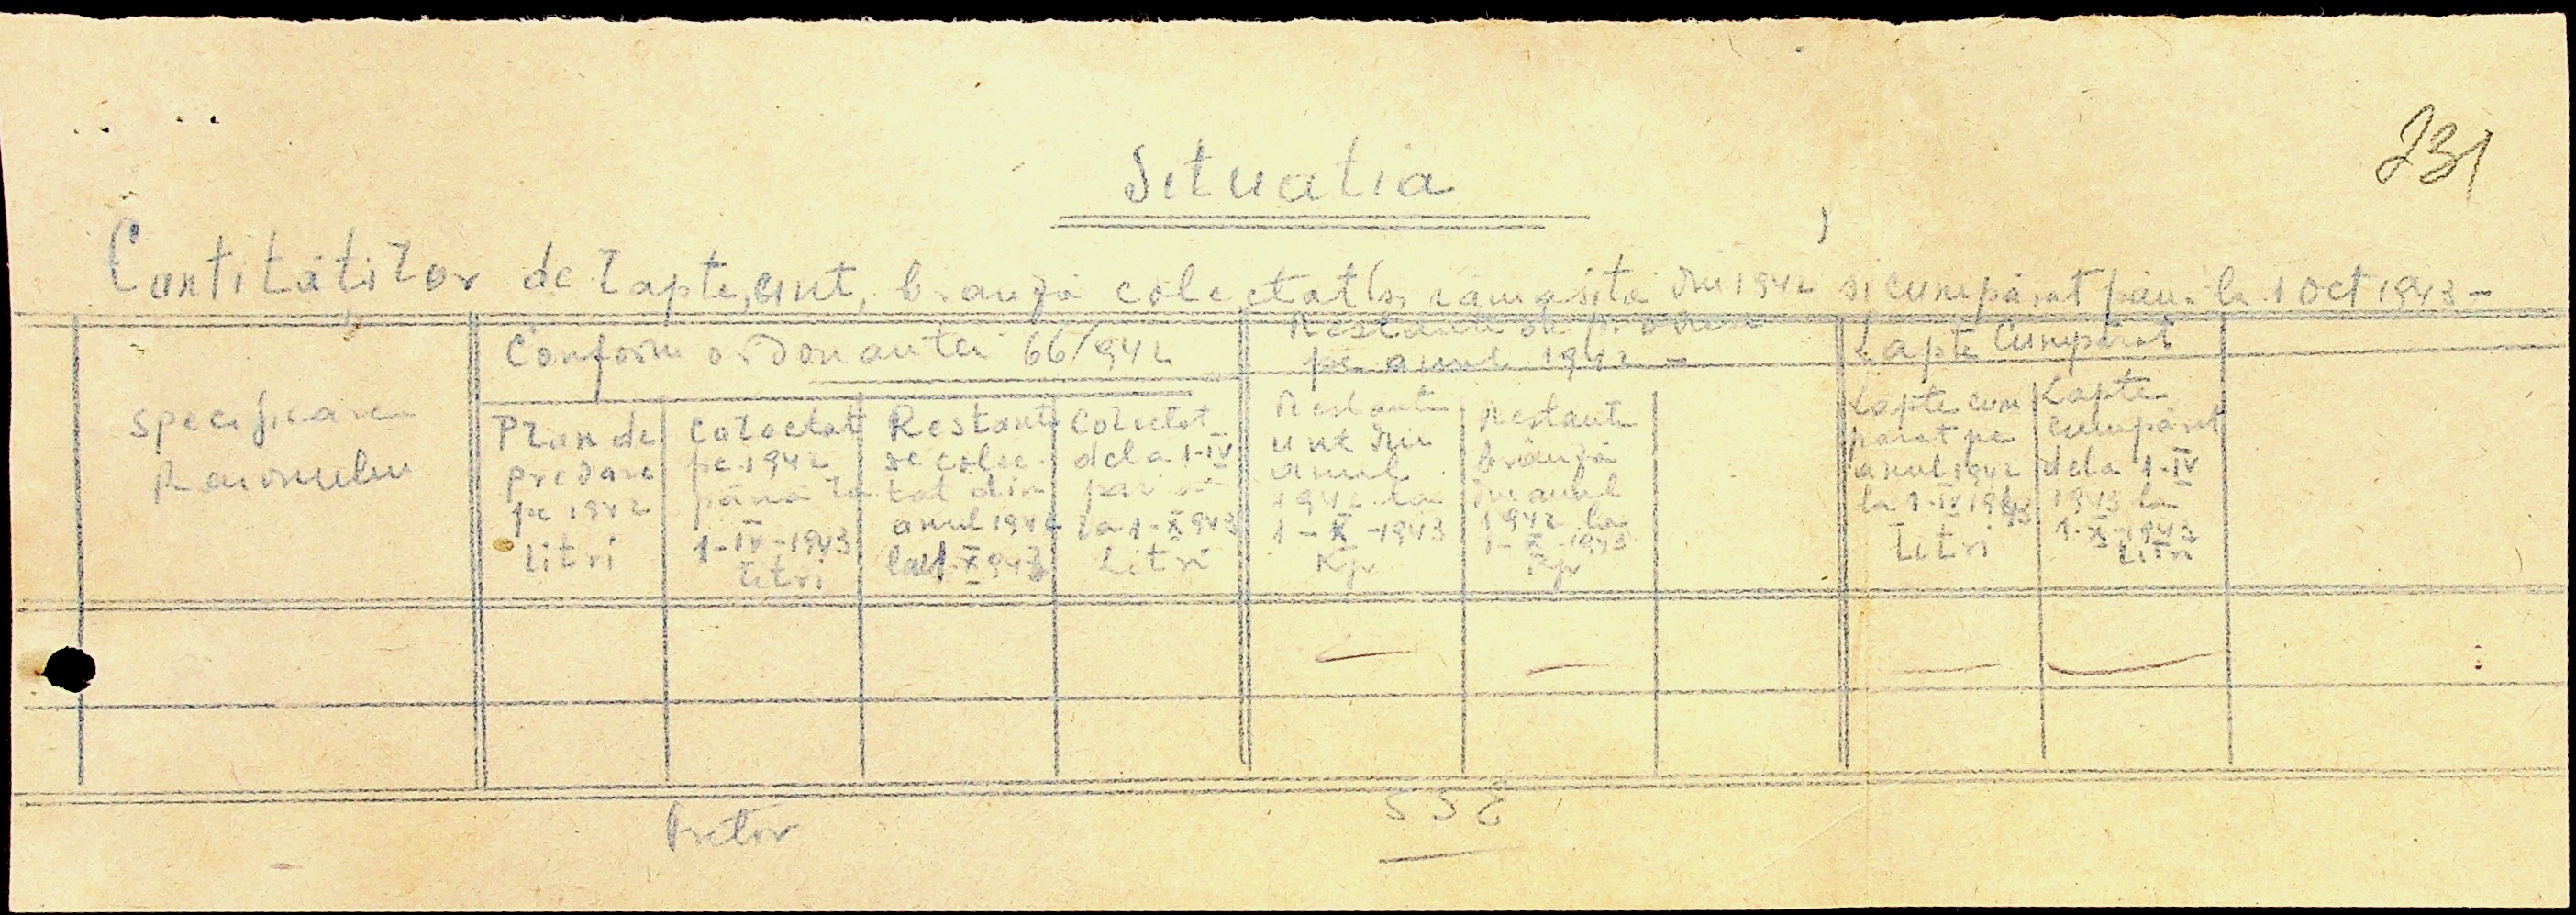 231
Situatia
Cantitătilor de lapte, unt, branză colectat și rămasită din 1942 si cumpărat până la 1 Oct 1943 -
Specificarea
Raionului
Conform ordonantei 66/942
Plan de
predare
pe 1942
litri
Colectat
pe 1942
până la
1-IV-1943
litri
Restant
de colec-
tat din
anul 1942
la 1-X 943
Colectat
dela 1-IV
la 1-X 943
Litri
pe anul 1942 -
Restant
unt din
anul
1942 la
1-X-1943
Kgr
Restant
brânză
din anul
1942 la
1-X-1943
Kgr
Lapte Cumpărat
Lapte cum
părat pe
anul 1942
la 1-IV 1943
litri
Lapte
cumpărat
dela 1-IV
1943 la
1-X-1943
Litri
Pretor